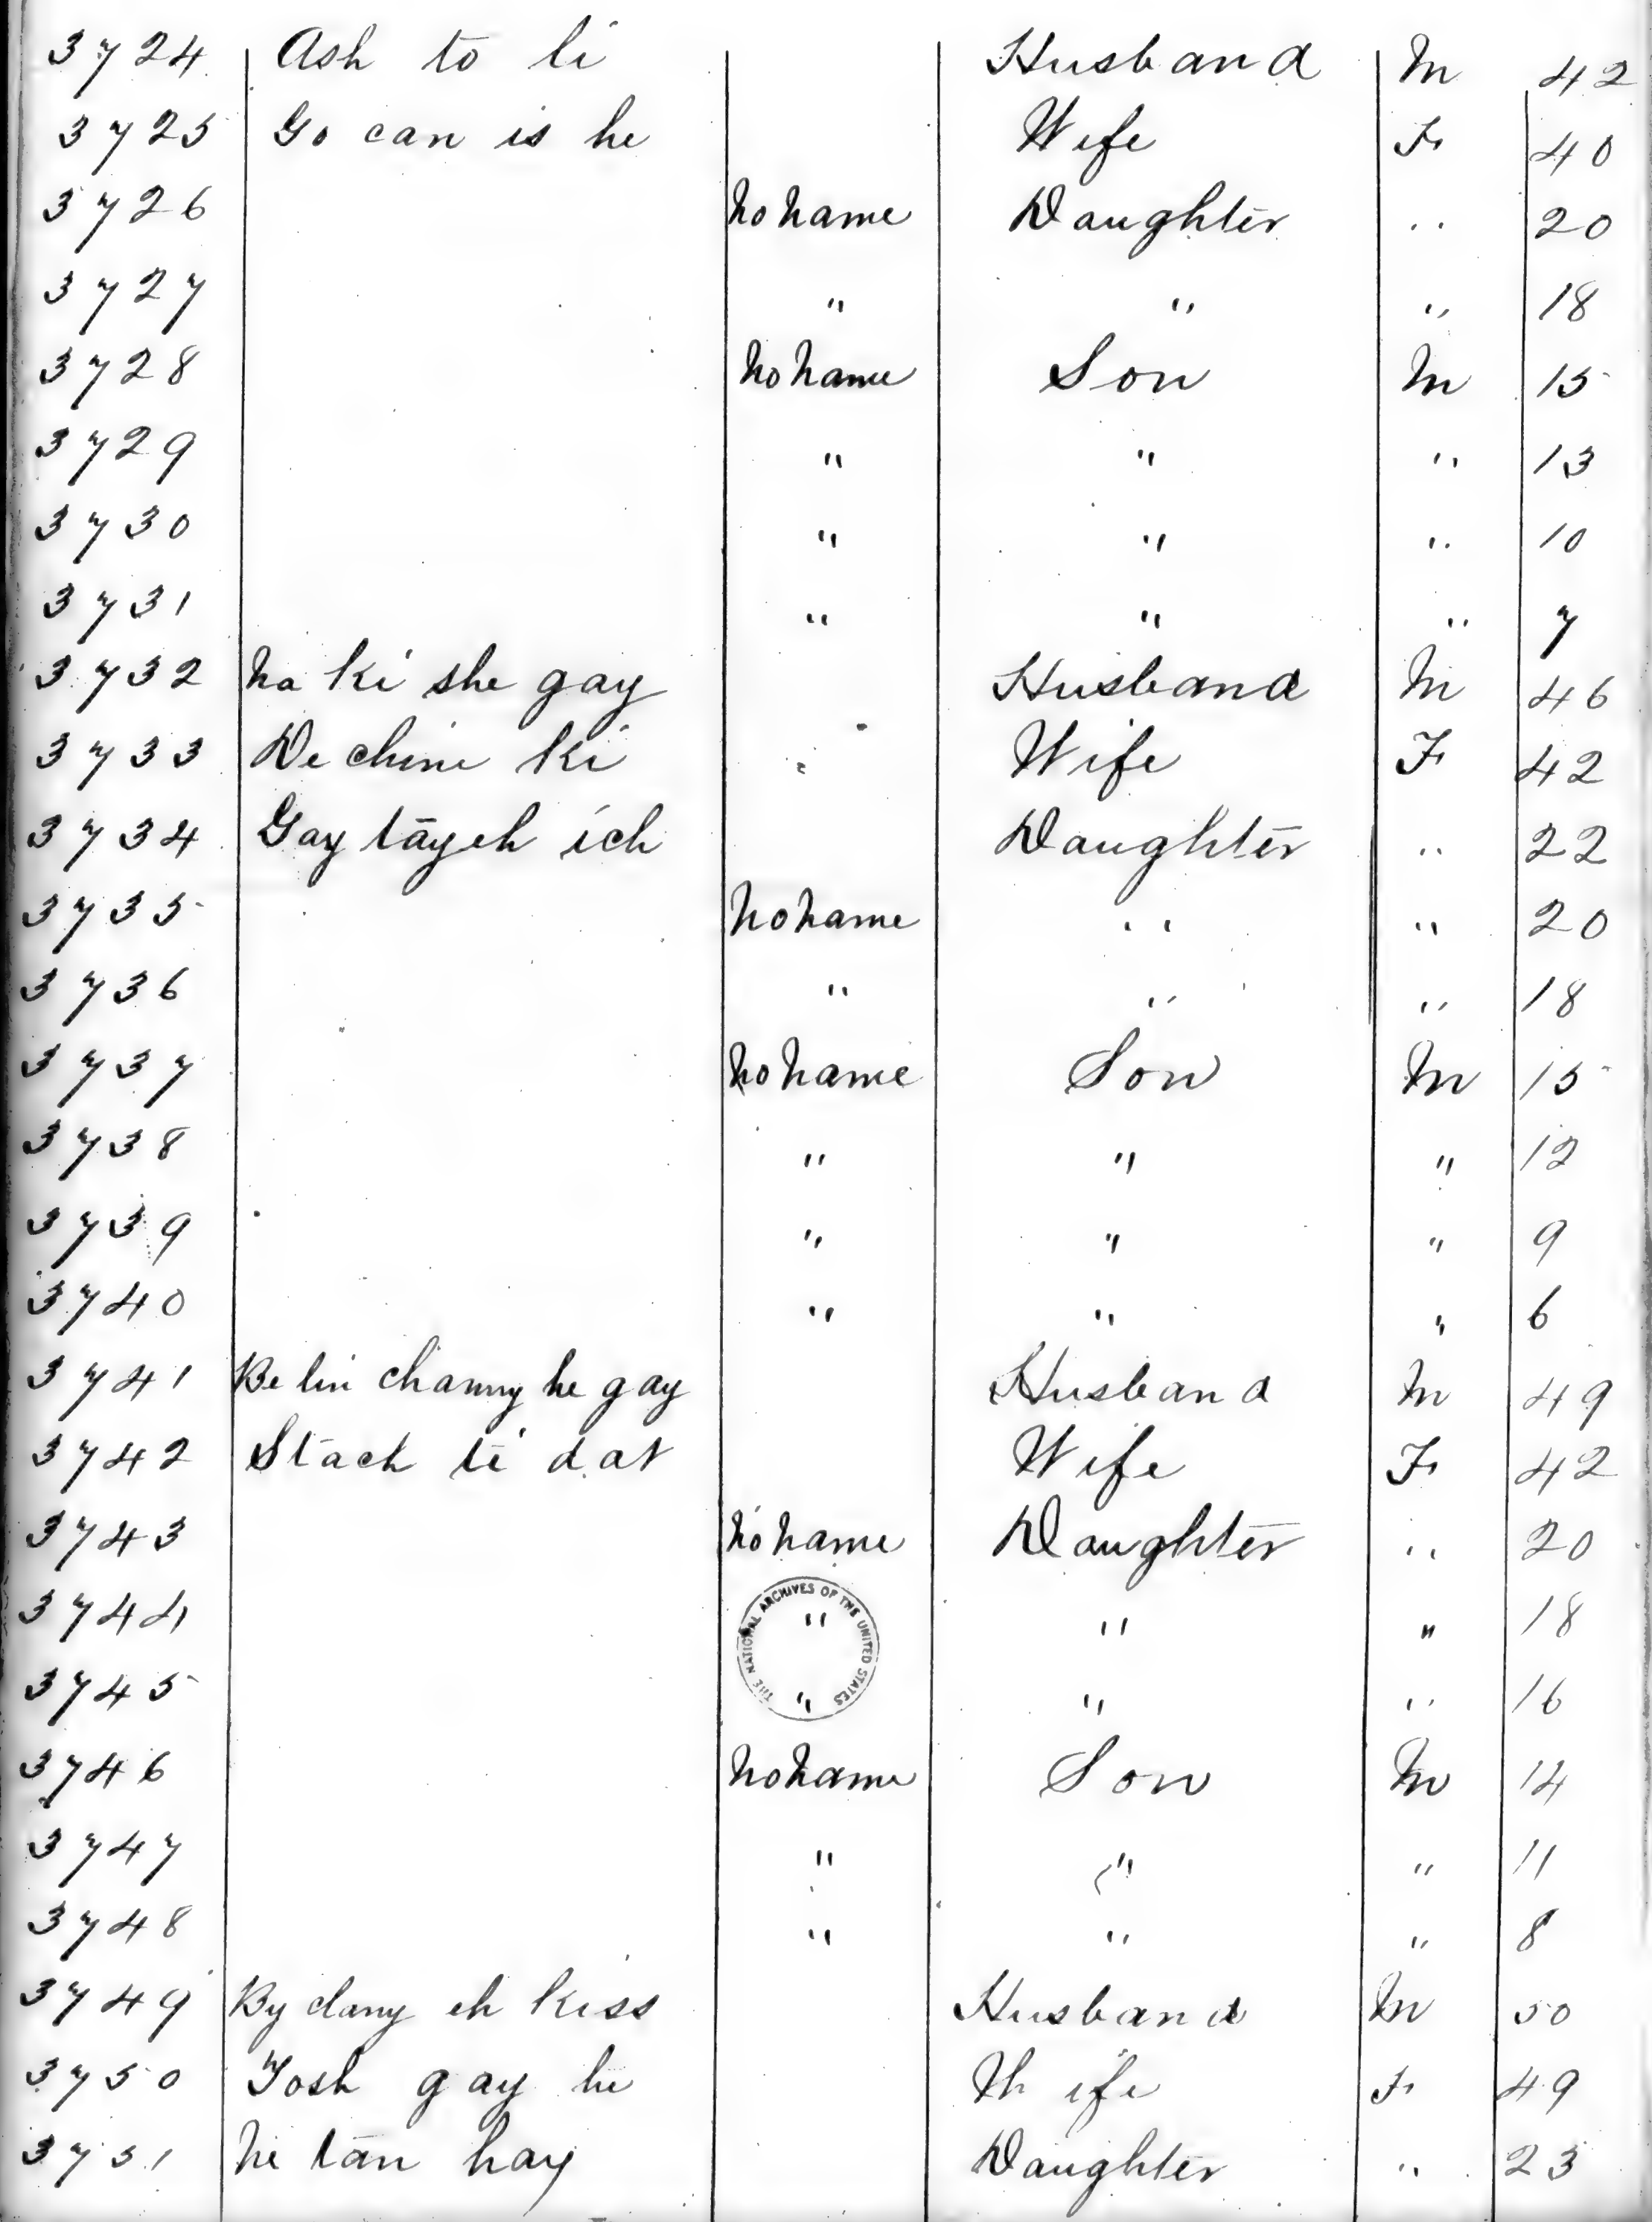 3724 Ash to li Husband M 42
3725 Go can is he Wife F 40
3726 No Name Daughter " 20
3727 " " " 18
3728 No Name Son M 15
3729 " " " 13
3730 " " " 10
3731 " " " 7
3732 Na Ki she gay Husband M 46
3733 De chine Ki Wife F 42
3734 Gay tayeh ich Daughter " 22
3735 No Name " " 20
3736 " " " 18
3737 No Name Son M 15
3738 " " " 12
3739 " " " 9
3740 " " " 6
3741 Be lin channy he gay Husband M 49
3742 Stach ti dat Wife F 42
3743 No Name Daughter " 20
3744 " " " 18
THE NATIONAL ARCHIVES OF THE UNITED STATES
3745 " " " 16
3746 No Name Son M 14
3747 " " " 11
3748 " " " 8
3749 By clany eh Kiss Husband M 50
3750 Yosh gay he Wife F 49
3751 Ne tan hay Daughter " 23